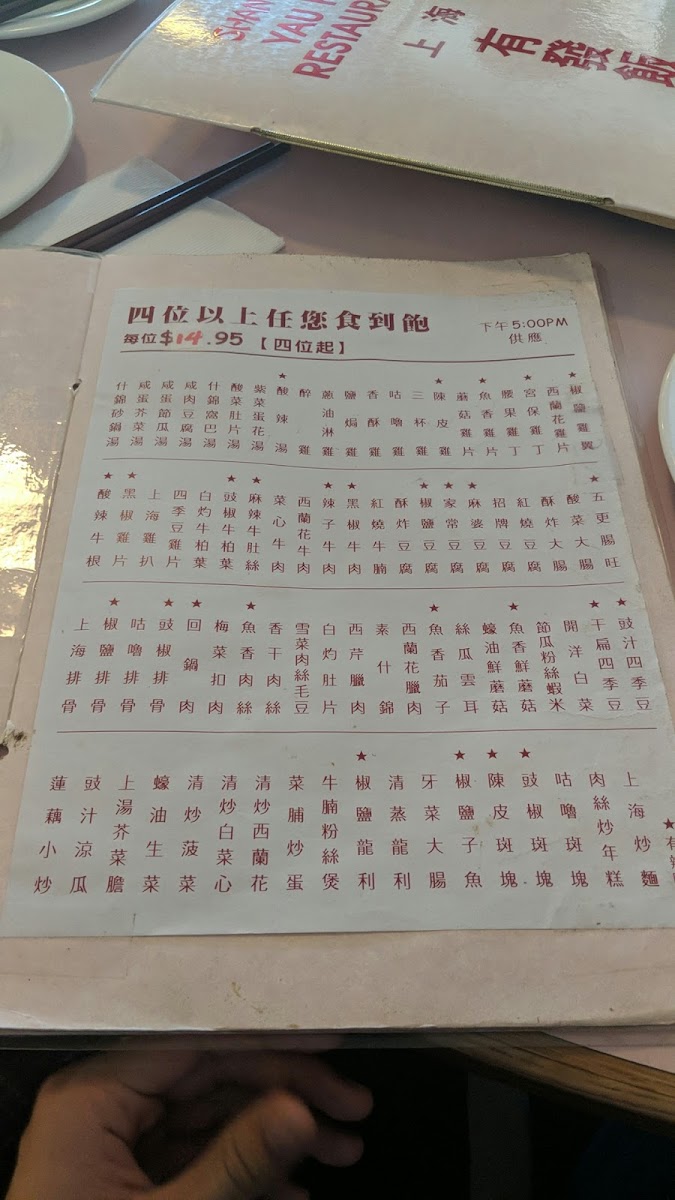 SHAN
YAU
RESTAURA
上海
有發飯
四位以上任您食到飽
每位$14.95【四位起】
下午5:00PM
供應
什錦砂鍋湯
咸蛋芥菜湯
咸蛋節瓜湯
咸肉豆腐湯
什錦窩巴湯
酸菜肚片湯
紫菜蛋花湯
★酸辣湯
醉雞
蔥油淋雞
鹽焗雞
香酥雞
咕嚕雞
三杯雞
★陳皮雞
蘑菇雞片
★魚香雞片
腰果雞丁
★宮保雞丁
西蘭花雞片
★椒鹽雞翼
★酸辣牛根
★黑椒雞片
上海雞扒
四季豆雞片
白灼牛柏葉
★豉椒牛柏葉
★麻辣牛肚絲
菜心牛肉
西蘭花牛肉
★辣子牛肉
★黑椒牛肉
紅燒牛腩
酥炸豆腐
★椒鹽豆腐
★家常豆腐
★麻婆豆腐
招牌豆腐
紅燒豆腐
酥炸大腸
酸菜大腸
★五更腸旺
上海排骨
★椒鹽排骨
咕嚕排骨
★豉椒排骨
★回鍋肉
梅菜扣肉
★魚香肉絲
香干肉絲
雪菜肉絲毛豆
白灼肚片
西芹臘肉
素什錦
西蘭花臘肉
★魚香茄子
絲瓜雲耳
蠔油鮮蘑菇
★魚香鮮蘑菇
節瓜粉絲蝦米
開洋白菜
★干扁四季豆
★豉汁四季豆
蓮藕小炒
豉汁涼瓜
上湯芥菜膽
蠔油生菜
清炒菠菜
清炒白菜心
清炒西蘭花
菜脯炒蛋
牛腩粉絲煲
★椒鹽龍利
清蒸龍利
牙菜大腸
★椒鹽子魚
★陳皮斑塊
★豉椒斑塊
咕嚕斑塊
肉絲炒年糕
上海炒麵
★有